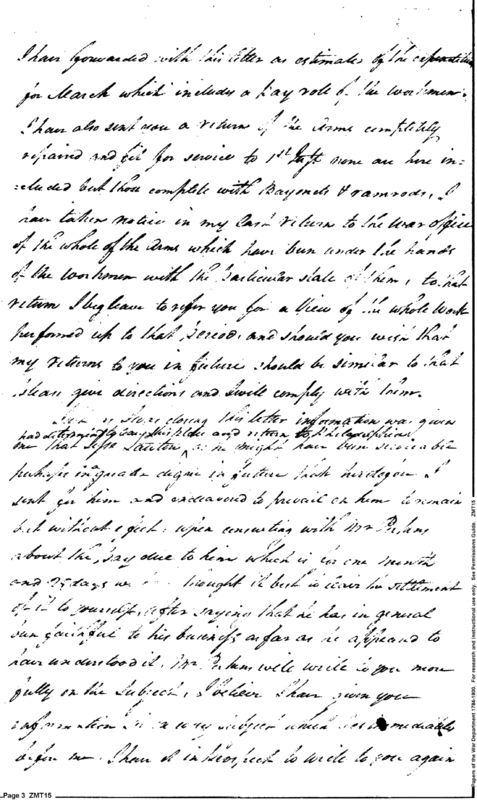 I have forwarded with this letter an estimate of the expenditures
for March which includes a pay role of the workmen.
I have also sent you a return of the Arms completely
repaired and fit for service to 1st none are here in-
:cluded but those complete with Bayonets & ramrods, I
have taken notice in my last return to the War office
of the whole of the Arms which have been under the hands
of the workmen with the particular state of them, to that
return I beg leave to refer you for a View of the whole work
performed up to that period, and should you wish that
my returns to you in future should be similar to that
please give directions and I will comply with them.
closing this letter information was given
had determined to leave this place and return to Philadelphia
me that as he might have been serviceable
perhaps in greater degree in future than heretofore I
sent for him and endeavored to prevail on him to remain
but without effect, upon consulting with Mr.
about the pay due to him which is for one month
and 25 days we thought it best to leave the settlement
of it to yourself, after saying that he has in general
been faithful to his business as far as he appeared to
have understood it. Mr. will write to you more
fully on the Subject, I believe I have given you
information on every subject which lies immediately
before me. I have it in prospect to write to you again
Page 3 ZMT15
Papers of the War Department 1784-1800. For research and instructional use only. See Permissions Guide. ZMT15